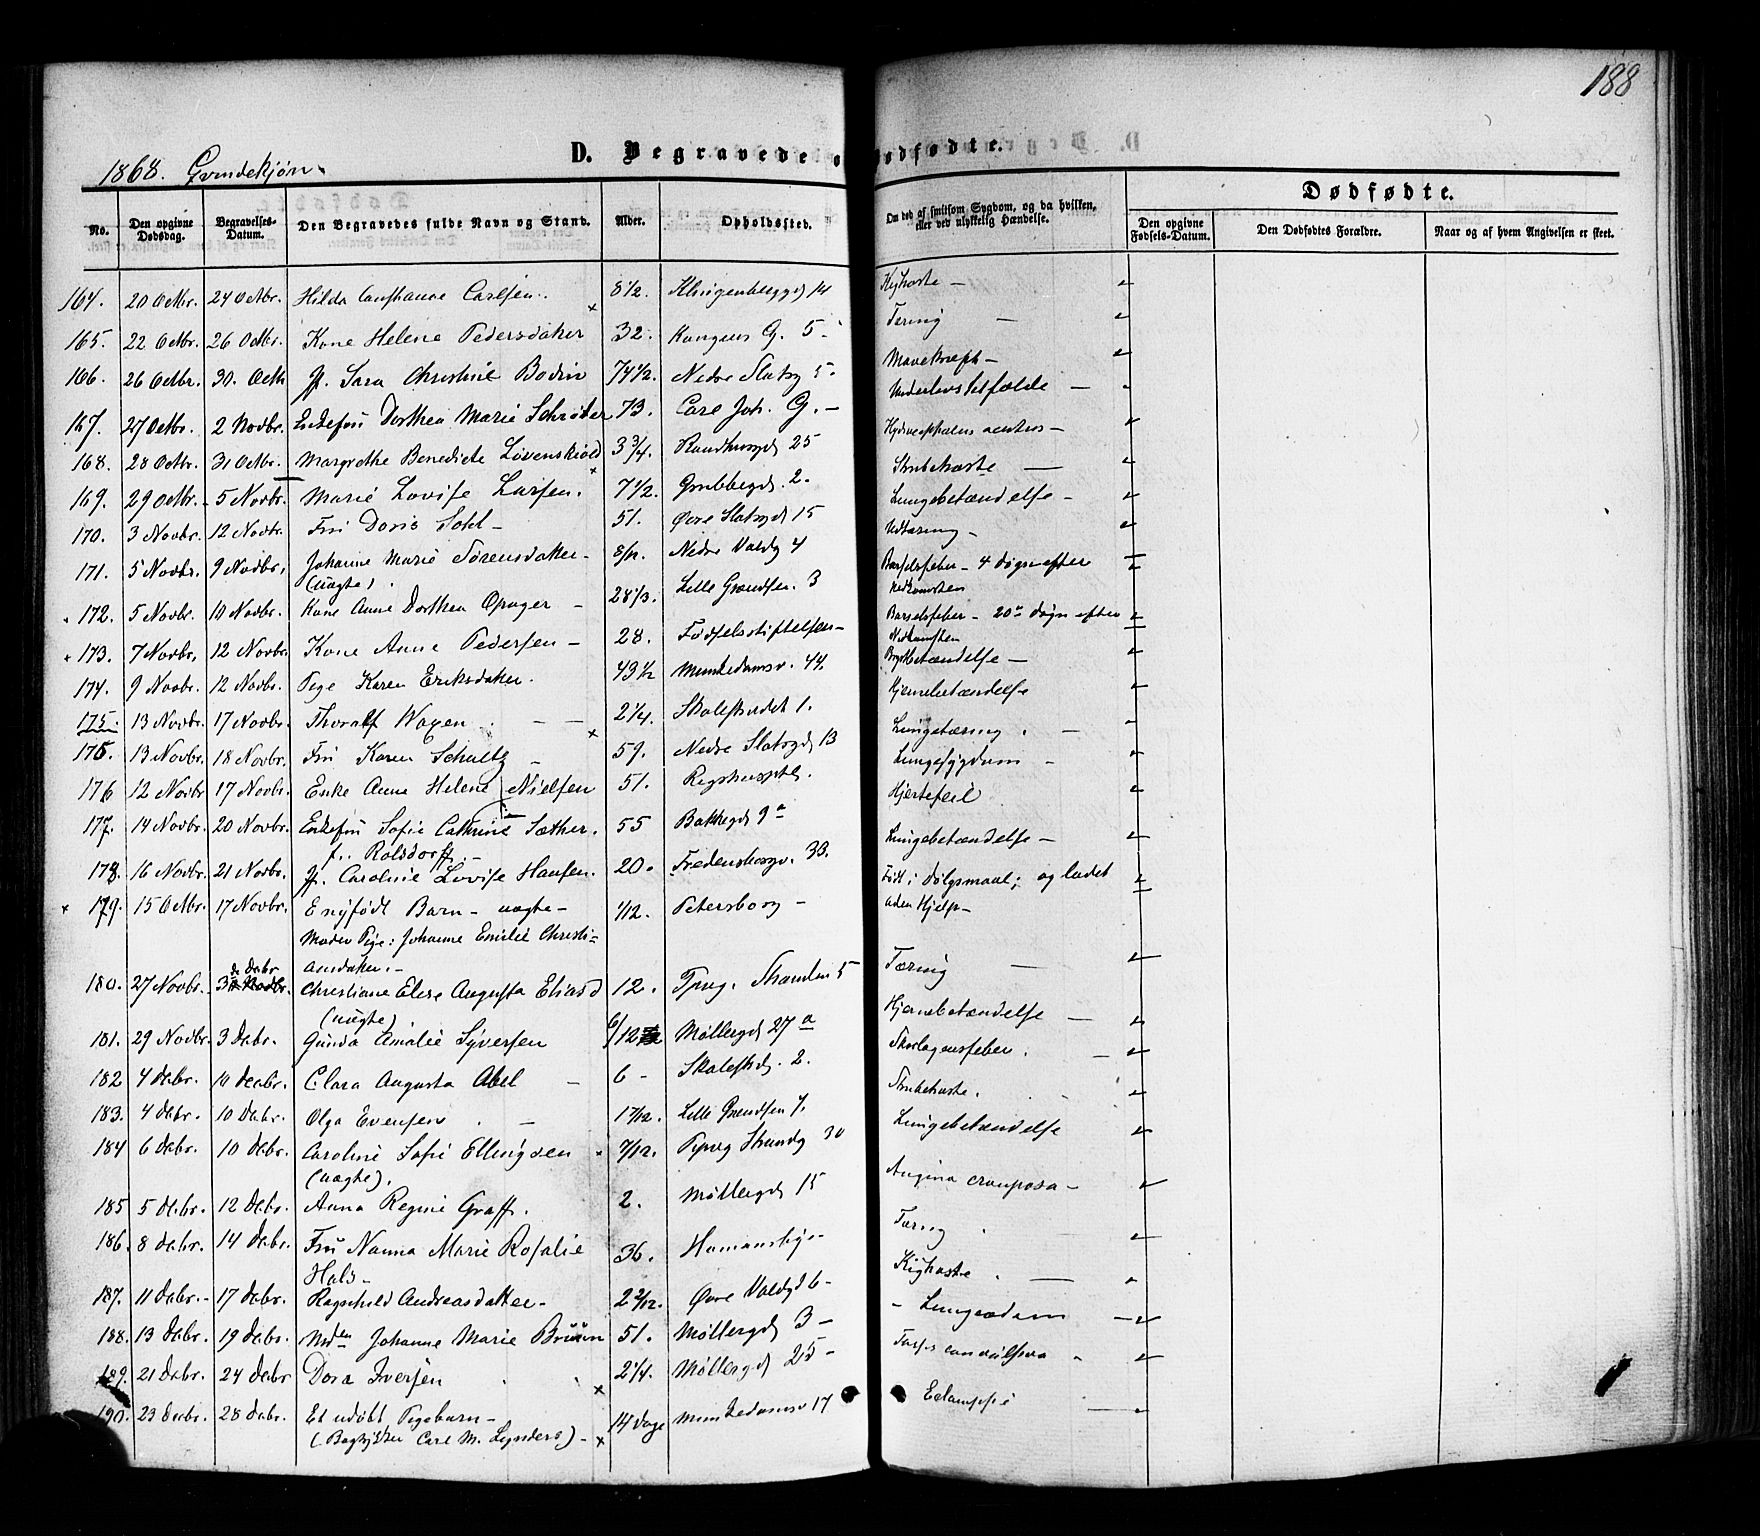 188
D. Begravede o
dødfødte.
1868. Qvindekjøn.
Dødfødte.
No.
Den opgivne Dødsdag.
Begravelses-Datum.
Den Begravedes fulde Navn og Stand.
Alder.
Opholdssted.
Om død af smitsom Sygdom, og da hvilken, eller ved ulykkelig Hændelse.
Den opgivne Fødsels-Datum.
Den Dødfødtes Forældre.
Naar og af hvem Angivelsen er skeet.
164. 20 Octbr. 24 Octbr. Hilda Constance Carlsen. 8½. Klingenberggd 14 Kighoste –
165. 22 Octbr. 26 Octbr. Kone Helene Pedersdatter 32. Kongens G. 5 Tæring –
166. 26 Octbr. 30. Octb Jf. Sara Christine Bodin 74½. Nedre Slotsg 5. Mavekræft –
167. 27 Octbr. 2 Novbr. Enkefru Dorthea Marie Schrøder 73. Carl Joh. G. – Underlivstilfælde –
168. 28 Octbr. 31 Octbr. Margrethe Benedicte Løvenskiold 3¾. Raadhusgd 25 Hydrocephalus acutus –
169. 29 Octbr. 5 Novbr. Marie Lovise Larsen. 7½. Grubbegd. 2. Strubehoste –
170. 3 Novbr. 12 Novbr. Fru Doris Sohl – 51. Øvre Slotsgd 15 Lungebetændelse –
171. 5 Novbr. 9 Novbr. Johanne Marie Sørensdatter – 8/12. Nedre Voldg 4 Udtæring –
(uægte).
172. 5 Novbr. 10 Novbr. Kone Anne Dorthea Opager – 28⅓. Lille Grændsen. 3 Barselfeber – 4 Døgn efter
Nedkomsten
173. 7 Novbr. 12 Novbr. Kone Anne Pedersen – 28. Fødselsstiftelsen – Barselfeber – 20de Døgn efter
Nedkomsten
174. 9 Novbr. 12 Novbr. Pige Karen Eriksdatter. 43½ Munkedamsv. 44. Brystbetændelse –
175. 13 Novbr. 17 Novbr. Thoralf Wogen – 2¼. Skolestrædet 1. Hjernebetændelse
175. 13 Novbr. 18 Novbr. Fru Karen Schultz – 59. Nedre Slotsgd 13 Lungetæring. –
176 12 Novbr 17 Novbr. Enke Anne Helene Nielsen 51. Rigshosptl. Lungesygdom –
177. 14 Novbr. 20 Novbr. Enkefru Sofie Cathrine Sæther. 55 Bakkegd 9a Hjertefeil
f. Rolsdorff. –
178. 16 Novbr. 21 Novbr. Jf. Caroline Lovise Hansen. 20. Fredensborgv. 33. Lungebetændelse –
179. 15 Octbr. 17 Novbr. Et nyfødt Barn – uægte – 1/12. Petersborg – Født i Dølgsmaal; og ladet
uden Hjelp –
Moder Pige: Johanne Emilie Christi=
ansdatter. –
180. 27 Novbr. 3 Decbr Christiane Elise Augusta Eliasd 12. Tjuvg. Stranden 5 Tæring –
(uægte)
181. 29 Novbr. 3 Decbr. Gunda Amalie Syversen 6/12 Møllergd 27a Hjernebetændelse –
182 4 Decbr. 10 Decbr. Clara Augusta Abel – 6 – Skolestrd. 2. Skarlagensfeber. –
183. 4 Decbr. 10 Decbr. Olga Evensen – 17/12. Lille Grændsen 7. Strubehoste.
184 6 Decbr. 10 Decbr. Caroline Sofie Ellingsen 7/12. Pipvg Strandg 30 Lungebetændelse
(uægte).
185 5 Decbr. 12 Decbr. Anna Regine Graff. 2. Møllergd 15 Angina crouposa –
186. 8 Decbr. 14 Decbr. Fru Nanna Marie Rosalie 36. Homansby – Tæring
Hals –
187. 11 Decbr. – 17 Decbr. Ragnhild Andreasdatter – 2 2/12. Øvre Voldgd 6 – Kighoste. –
188. 13 Decbr. 19 Decbr. Mden Johanne Marie Bruun 51. Møllergd 3 – Lungeødem –
189. 21 Decbr. 24 Decbr Dora Iversen 2¼. Møllergd 25 – Tussis convulsiva
190. 23 Decbr. 28 Decbr. Et udøbt Pigebarn – 14 Dage Munkedamsv 17 Eclampsie
(Bogtrykker Carl M. Lynders) –